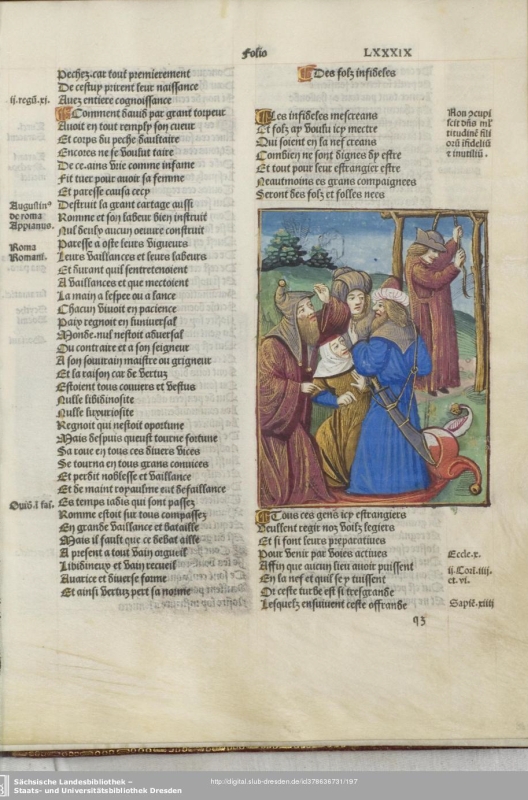 Folio LXXXIX
Pechez.car tout premierement
De cestuy prirent leur naissance
ij.regū.xi. Auez entiere cognoissance
Comment dauid par grant torpeur
Auoit en tout remply son cueur
Et corps du peche daultaire
Encores ne se voulut taire
De ce.ains vie comme infame
Fit tuer pour auoir sa femme
Et paresse causa cecy
Augustinꝰ de roma Appianus.
Destruit la grant cartage aussi
Romme et son labeur bien instruit
Nul deuly aucun oeuure construit
Roma Romani.
Paresse a oste leurs vigueurs
Leurs vaillances et leurs labeurs
Et durant quil sentretenoient
A vaillances et que mectoient
La main a lespee ou a lance
Chacun viuoit en pacience
Paix regnoit en luniuersal
Monde.nul nestoit aduersal
Ou contraire et a son seigneur
A son souurain maistre ou grigneur
Et la raison car de vertuz
Estoient tous couuers et vestus
Nulle libidinosite
Nulle luxuriosite
Regnoit qui nestoit oportune
Mais despuis queust tourne fortune
Sa roue en tous ces diuers vices
Se tourna en tous grans conuices
Et perdit noblesse et vaillance
Et de maint royaulme eut defaillance
Es temps iadis qui sont passez
Romme estoit sur tous compassez
En grande vaillance et bataille
Mais il fault que ce debat aille
A present a tout vain orgueil
Libidineux et vain recueil
Auarice et diuerse forme
Et ainsi vertuz pert sa norme
Des folz infideles
Les infideles mescreans
Et folz ay voulu icy mectre
Qui soient en la nef creans
Combien ne sont dignes dy estre
Et tout pour leur estrangier estre
Neautmoins ces grans compaignees
Seront des folz et folles nees
Tous ces gens icy estrangiers
Veullent regir noz voilz legiers
Et si font leurs preparatiues
Pour venir par voies actiues
Eccle.x.
Affin que aucun lieu auoir puissent
En la nef et quil se y tuissent
Or ceste turbe est si tresgrande
Lesquelz ensuiuent ceste offrande
Sapiē.xiiij
Sächsische Landesbibliothek –
Staats- und Universitätsbibliothek Dresden
http://digital.slub-dresden.de/id378636731/197